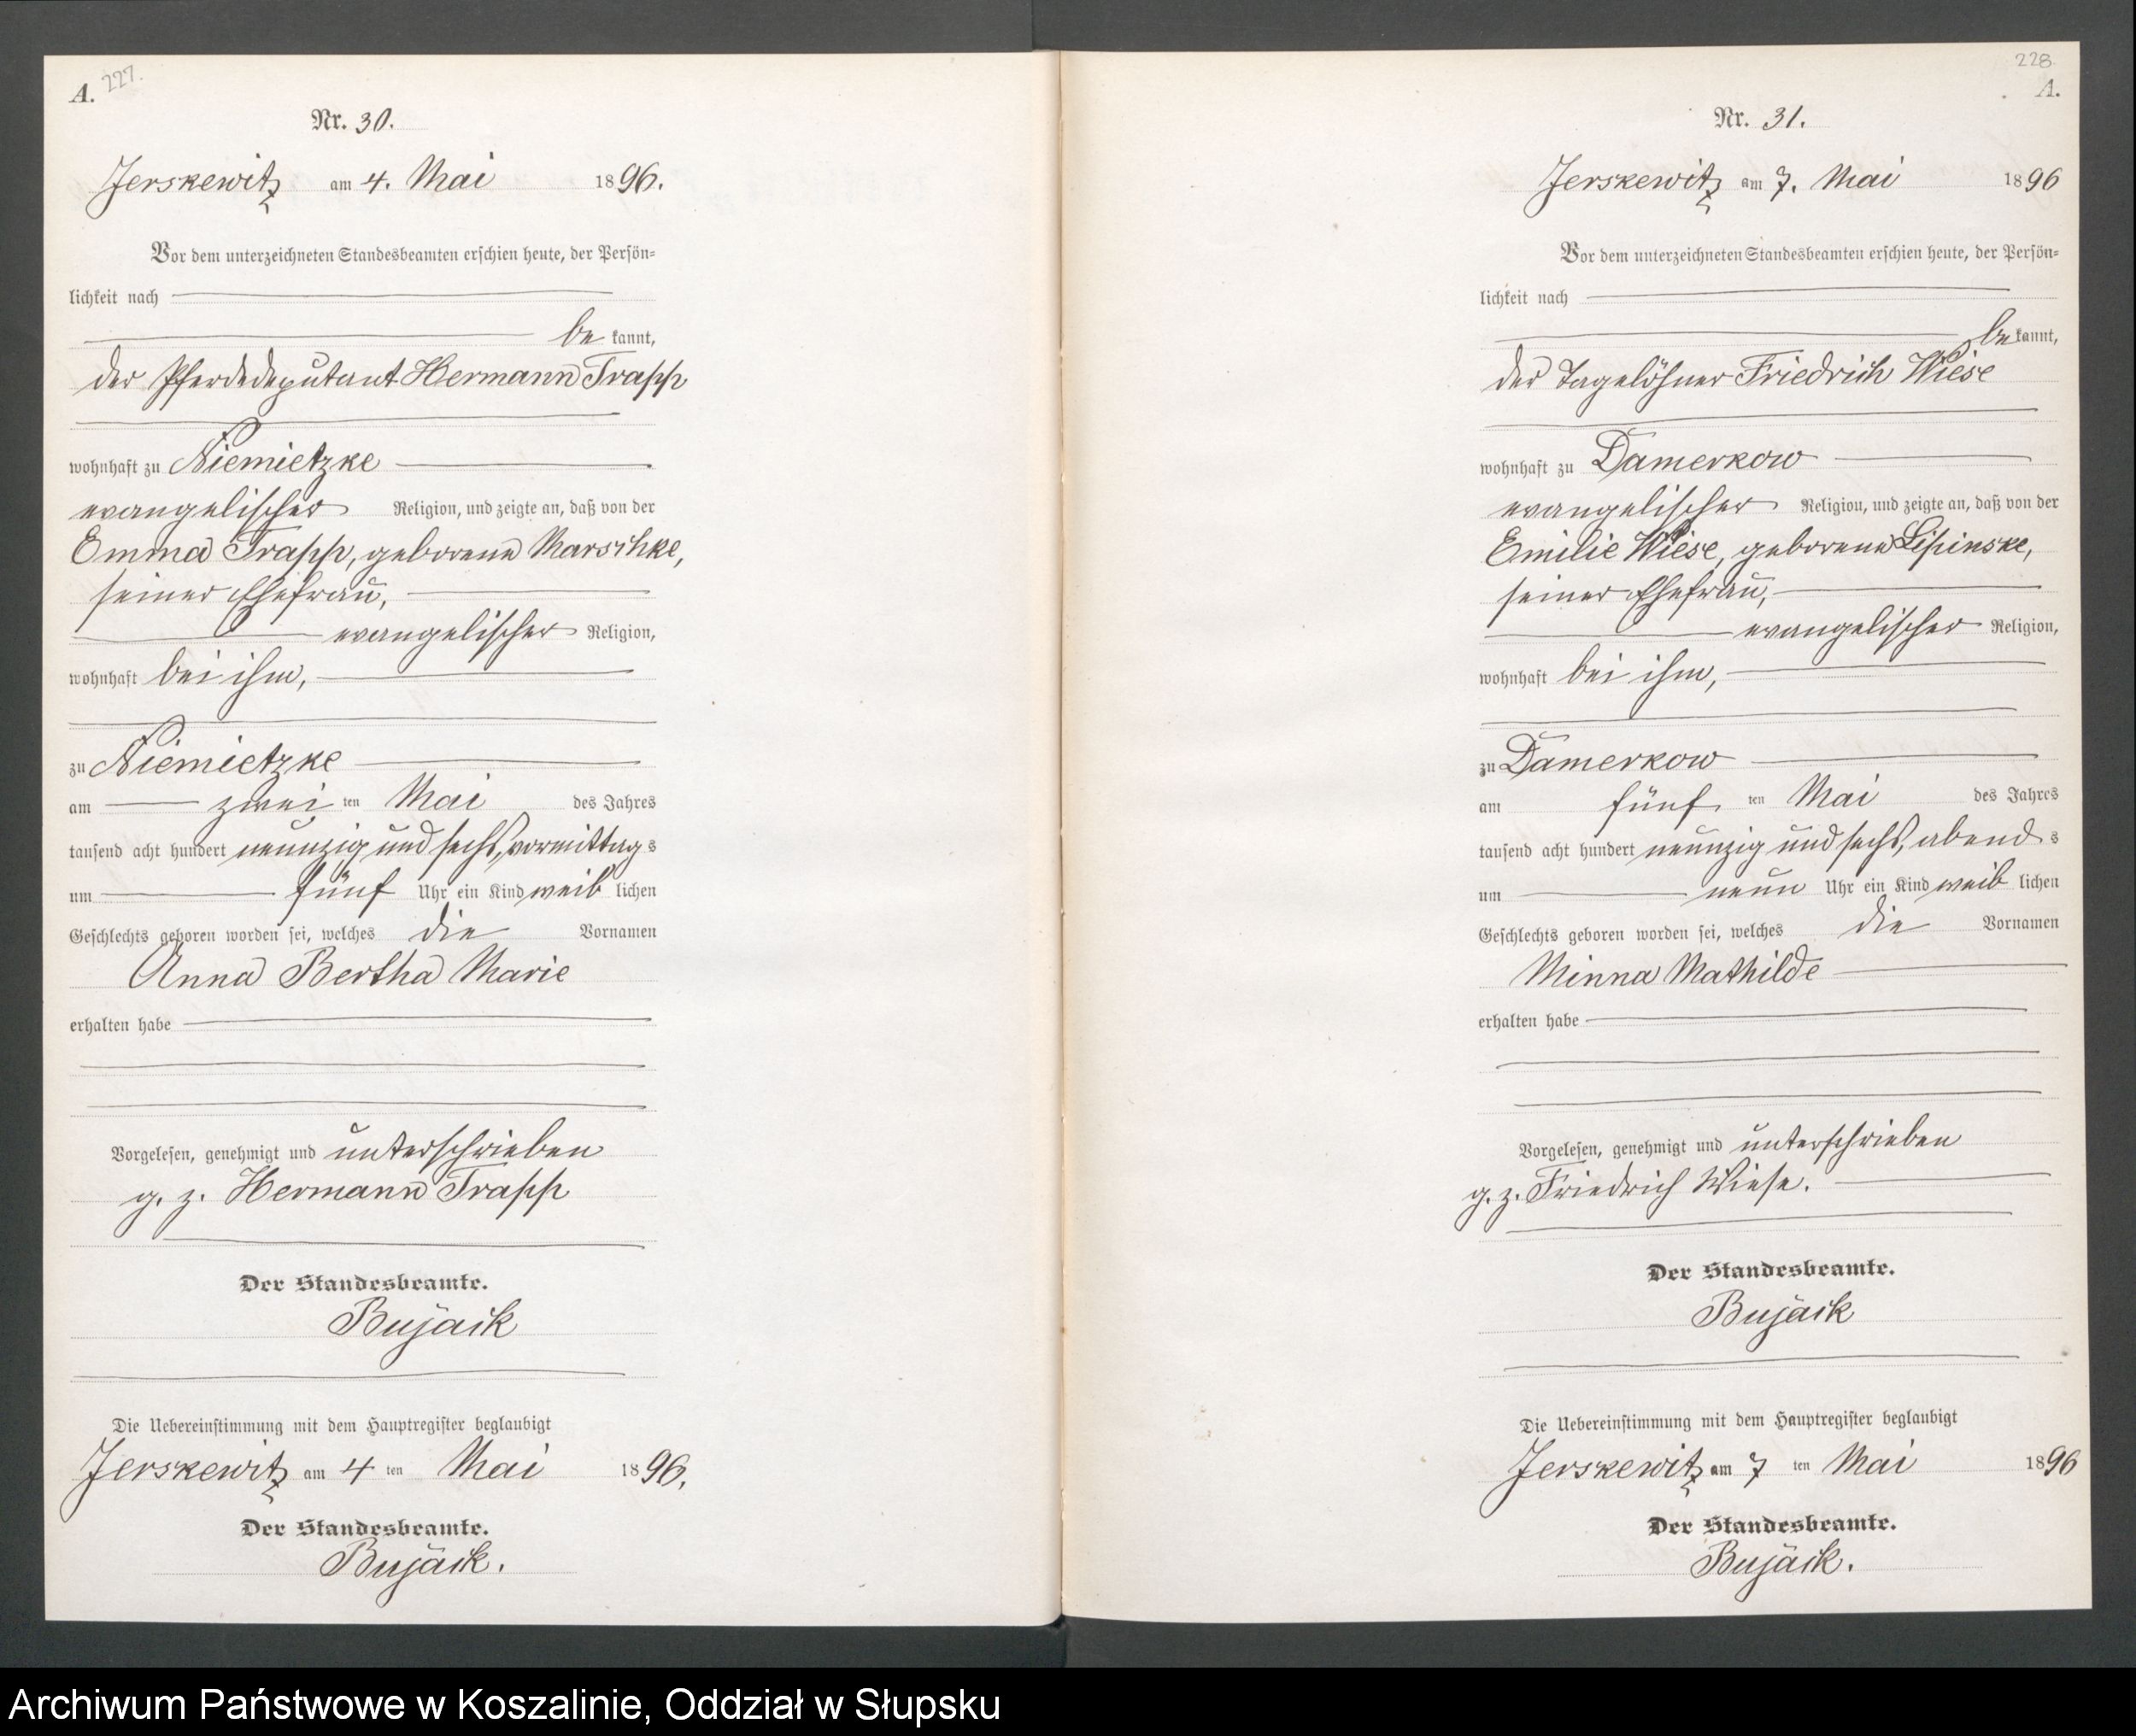 A. 227.
Nr. 30.
Jerskewitz am 4. Mai 1896.
Vor dem unterzeichneten Standesbeamten erschien heute, der Persön=
lichkeit nach
be kannt,
der Pferdedeputant Hermann Trapp
wohnhaft zu Niemietzke
evangelischer Religion, und zeigte an, daß von der
Emma Trapp, geborene Marschke,
seiner Ehefrau,
evangelischer Religion,
wohnhaft bei ihm,
zu Niemietzke
am zwei ten Mai des Jahres
tausend acht hundert neunzig und sechs, vormittag s
um fünf Uhr ein Kind weib lichen
Geschlechts geboren worden sei, welches die Vornamen
Anna Bertha Marie
erhalten habe
Vorgelesen, genehmigt und unterschrieben
g. z. Hermann Trapp
Der Standesbeamte.
Bujack
Die Uebereinstimmung mit dem Hauptregister beglaubigt
Jerskewitz am 4 ten Mai 1896.
Der Standesbeamte.
Bujack.
228
A.
Nr. 31.
Jerskewitz am 7. Mai 1896
Vor dem unterzeichneten Standesbeamten erschien heute, der Persön=
lichkeit nach
be kannt,
der Tagelöhner Friedrich Wiese
wohnhaft zu Damerkow
evangelischer Religion, und zeigte an, daß von der
Emilie Wiese, geborene Lipinske,
seiner Ehefrau,
evangelischer Religion,
wohnhaft bei ihm,
zu Damerkow
am fünf ten Mai des Jahres
tausend acht hundert neunzig und sechs, abend s
um neun Uhr ein Kind weib lichen
Geschlechts geboren worden sei, welches die Vornamen
Minna Mathilde
erhalten habe
Vorgelesen, genehmigt und unterschrieben
g. z. Friedrich Wiese.
Der Standesbeamte.
Bujack
Die Uebereinstimmung mit dem Hauptregister beglaubigt
Jerskewitz am 7 ten Mai 1896
Der Standesbeamte.
Bujack.
Archiwum Państwowe w Koszalinie, Oddział w Słupsku